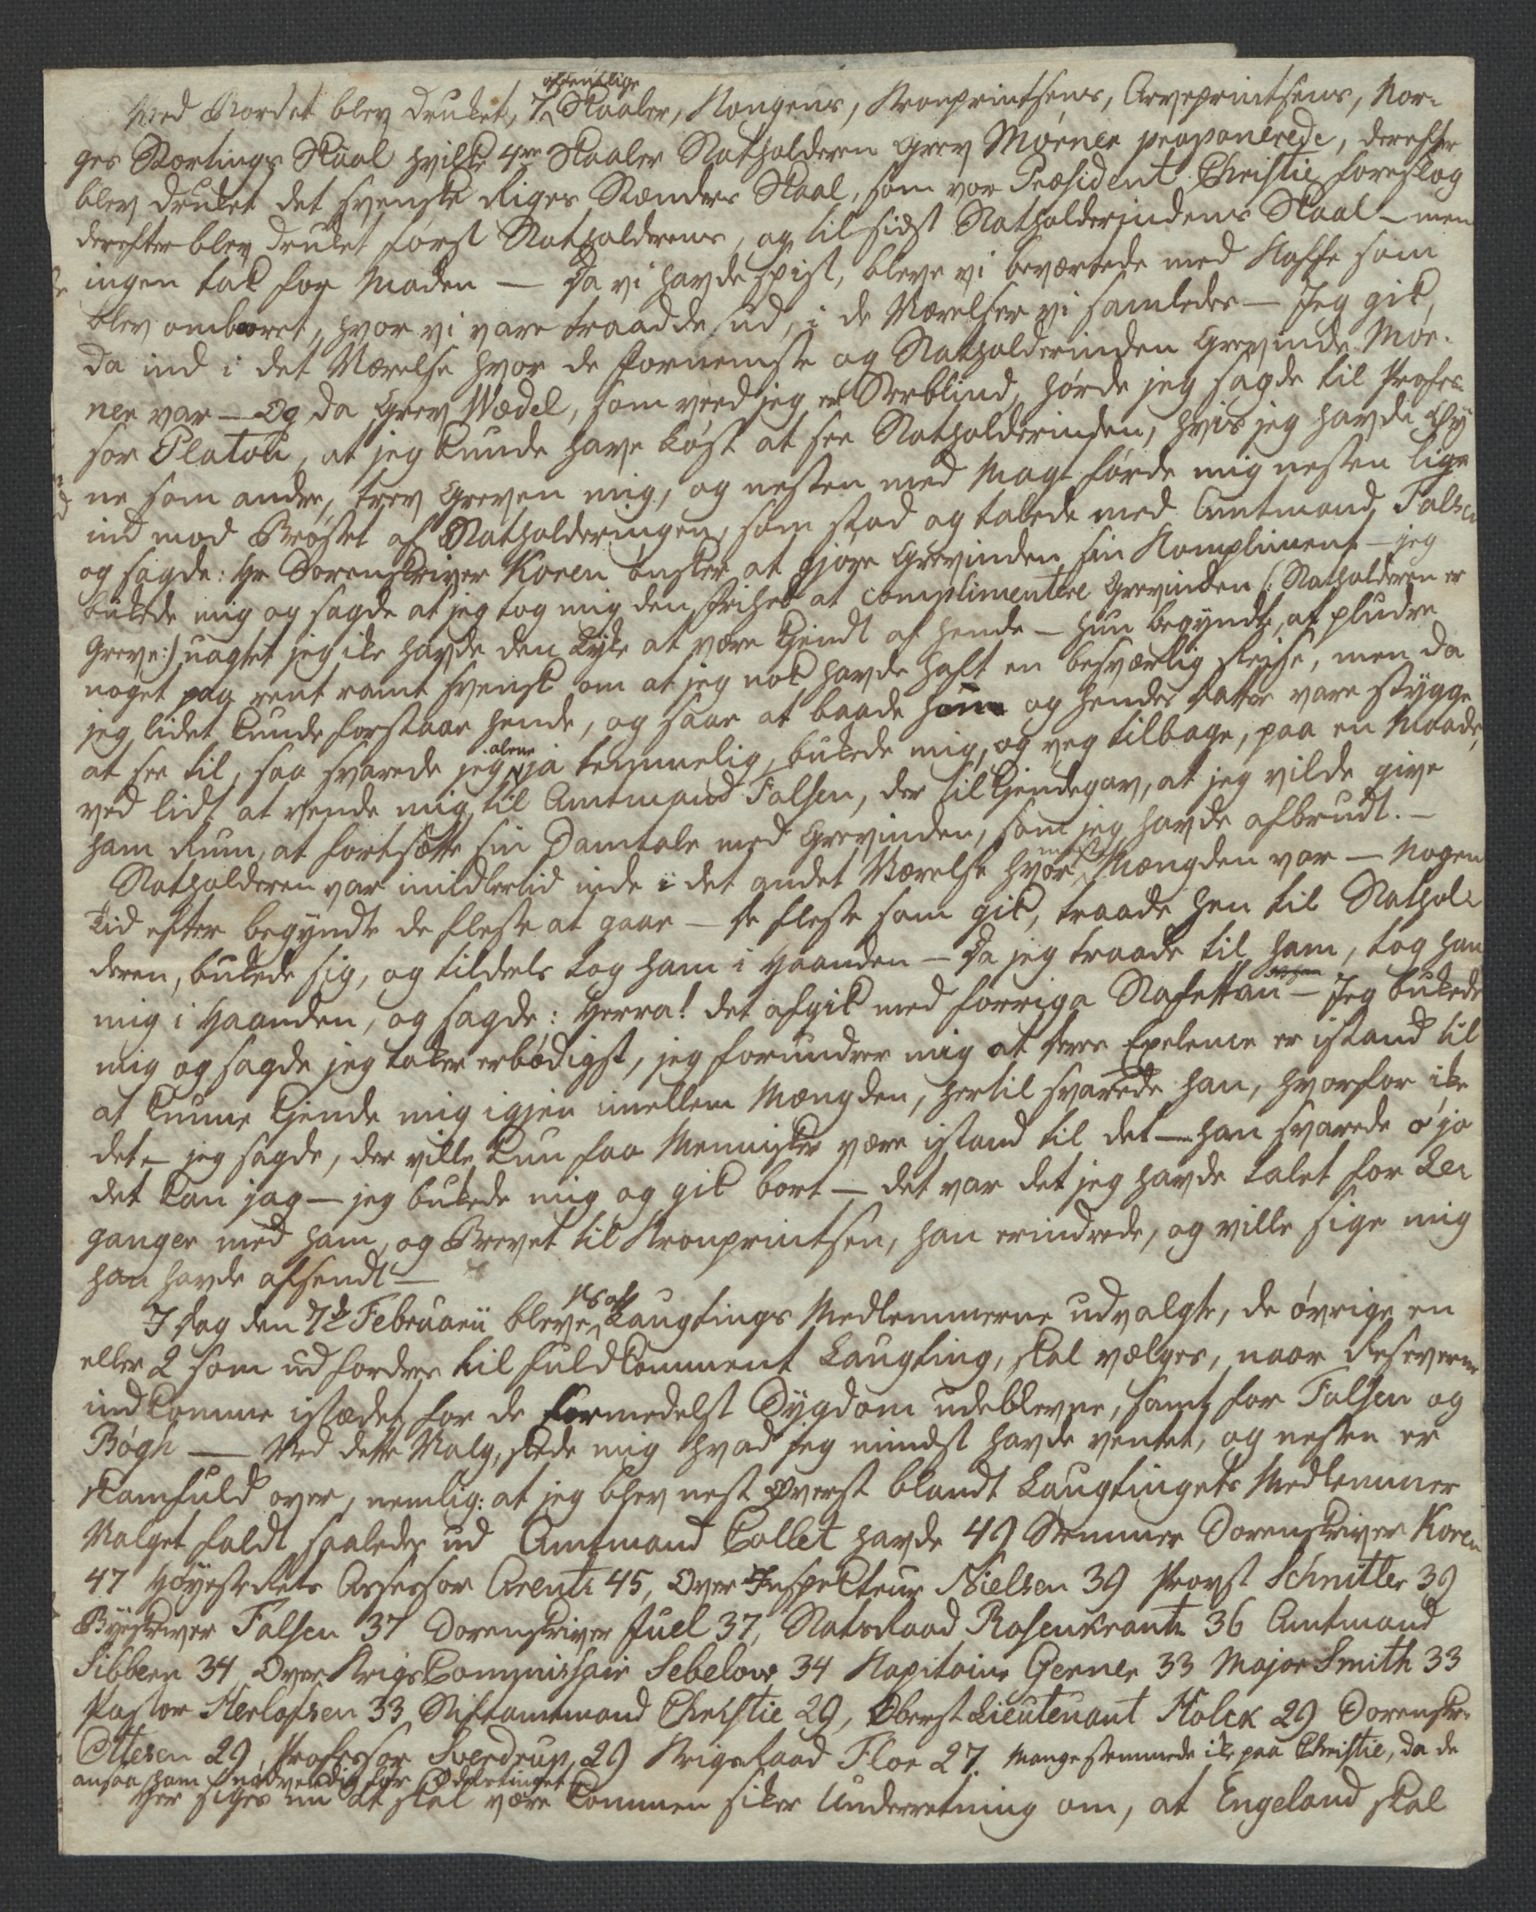 Ved Bordet blev drukket, 7 offentlige Skaaler, Kongens, Kronprintsens, Arveprintsens, Nor-
ges Stortings Skaal hvilke 4re Skaaler Statholderen Grev Mörner proponerede, derefter
blev drukket det svenske Riges Stænders Skaal, som vor Præsident Christie foreslog
derefter blev drukket först Statholderens, og til sidst Statholderindens Skaal – men
ingen tak for Maden — Da vi havde spist, bleve vi beværtede med Kaffe som
blev ombaaret, hvor vi vare traadde ud, i de Værelser vi samledes — Jeg gik,
da ind i det Værelse hvor de fornemste og Statholderinden Grevinde Mör-
ner var — Og da Grev Wedel, som veed jeg er Stærblind, hörde jeg sagde til Profes-
sor Platou, at jeg kunde have Löst at see Statholderinden, hvis jeg havde Öy
ne som andre, trev Greven mig, og nesten med Magt förde mig nesten lige
ind mod Bröstet af Statholderingen, som stod og talede med Amtmand Falsen
og sagde: Hr Sorenskriver Koren önsker at gjöre Grevinden sin Kompliment – jeg
bukkede mig og sagde at jeg tog mig den Frihed at complimentere Grevinden (: Statholderen er
Greve:) uagtet jeg ikke havde den Lykke at være kjendt af hende — hun begyndte at pludre
noget paa rent ramt svensk om at jeg nok havde haft en besværlig Reise, men da
jeg lidet kunde forstaae hende, og saae at baade hun og hendes Datter vare stygge
at see til, saa svarede jeg alene ja temmelig, bukkede mig, og veg tilbage, paa en Maade,
ved lidt at vende mig til Amtmand Falsen, der tilkjendegav, at jeg vilde give
ham Rum, at fortsætte sin Samtale med Grevinden, som jeg havde afbrudt. —
Statholderen var imidlertid inde i det andet Værelse hvor meste Mængden var — Nogen
Tid efter begyndte de fleste at gaae — de fleste som gik, traade hen til Stathol-
deren, bukkede sig, og tildels tog ham i Haanden — Da jeg traade til ham, tog han
mig i Haanden, og sagde: Herra! det afgik med forriga Stafettan — Jeg bukkede
mig og sagde jeg takker erbödigst, jeg forundrer mig at deres Expelence er istand til
at kunne kjende mig igjen imellem Mængden, hertil svarede han, hvorfor ikke
det – jeg sagde, der ville kun faa Mennisker være istand til det — han svarede o' jo
det kan jag — jeg bukkede mig og gik bort — det var det jeg havde talet for Le-
ganger med ham, og Brevet til Kronprintsen, han erindrede, og ville sige mig
han havde afsendt —
I dag den 7de Februarii bleve Laugtings Medlemmerne udvalgte, de övrige en
eller 2 som udfordres til fuldkomment Laugting, skal vælges, naar Reseverne
indkomme istædet for de formedelst Sygdom udeblevne, samt for Falsen og
Bögh — Ved dette Valg, skede mig hvad jeg mindst havde ventet, og nesten er
skamfuld over, nemlig: at jeg blev nest Överst blandt Laugtingets Medlemmer
Valget faldt saaledes ud Amtmand Collet havde 49 Stemmer Sorenskriver Koren
47 Höyesterets Assessor Arentz 45, Over Inspekteur Nielsen 39 Provst Schnitler 39
Byeskriver Falsen 37 Sorenskriver Juel 37, Statsraad Rosenkrantz 36 Amtmand
Sibbern 34 Over Krigs Commissair Sebelow 34 Kapitaine Gerner 33 Major Smith 33
Pastor Herlofsen 33 Stiftamtmand Christie 29, Oberst Lieutenant Holck 29 Sorenskr.
Ottesen 29, Professor Sverdrup, 29 Krigsraad Floe 27. Mange stemmede ikke paa Christie, da de
ansaa ham nödvendig for Odelstinget
Her siges nu at skal være kommen sikker Underretning om, at Engeland skal